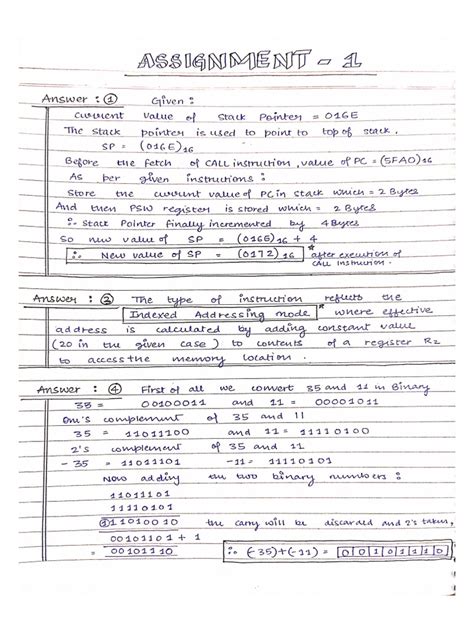 ASSIGNMENT - 1
Answer : ① Given :
Current Value of Stack Pointer = 016E
The Stack pointer is used to point to top of stack.
SP = (016E)16
Before the fetch of CALL instruction, value of PC = (5FA0)16
As per given instructions :
Store the current value of PC in stack which = 2 Bytes
And then PSW register is stored which = 2 Bytes
∴ Stack Pointer finally incremented by 4 Bytes
So new value of SP = (016E)16 + 4
∴ New value of SP = (0172)16 * after execution of
CALL instruction.
Answer : ② The type of instruction reflects the
Indexed Addressing mode * where effective
address is calculated by adding constant value
(20 in the given case) to contents of a register R2
to access the memory location.
Answer : ④ First of all we convert 35 and 11 in Binary
35 = 00100011 and 11 = 00001011
One's complement of 35 and 11
35 = 11011100 and 11 = 11110100
2's complement of 35 and 11
- 35 = 11011101 -11 = 11110101
Now adding the two binary numbers :
11011101
11110101
①11010010 the carry will be discarded and 2's taken,
00101101 + 1
= 00101110 ∴ (-35)+(-11) = 00101110